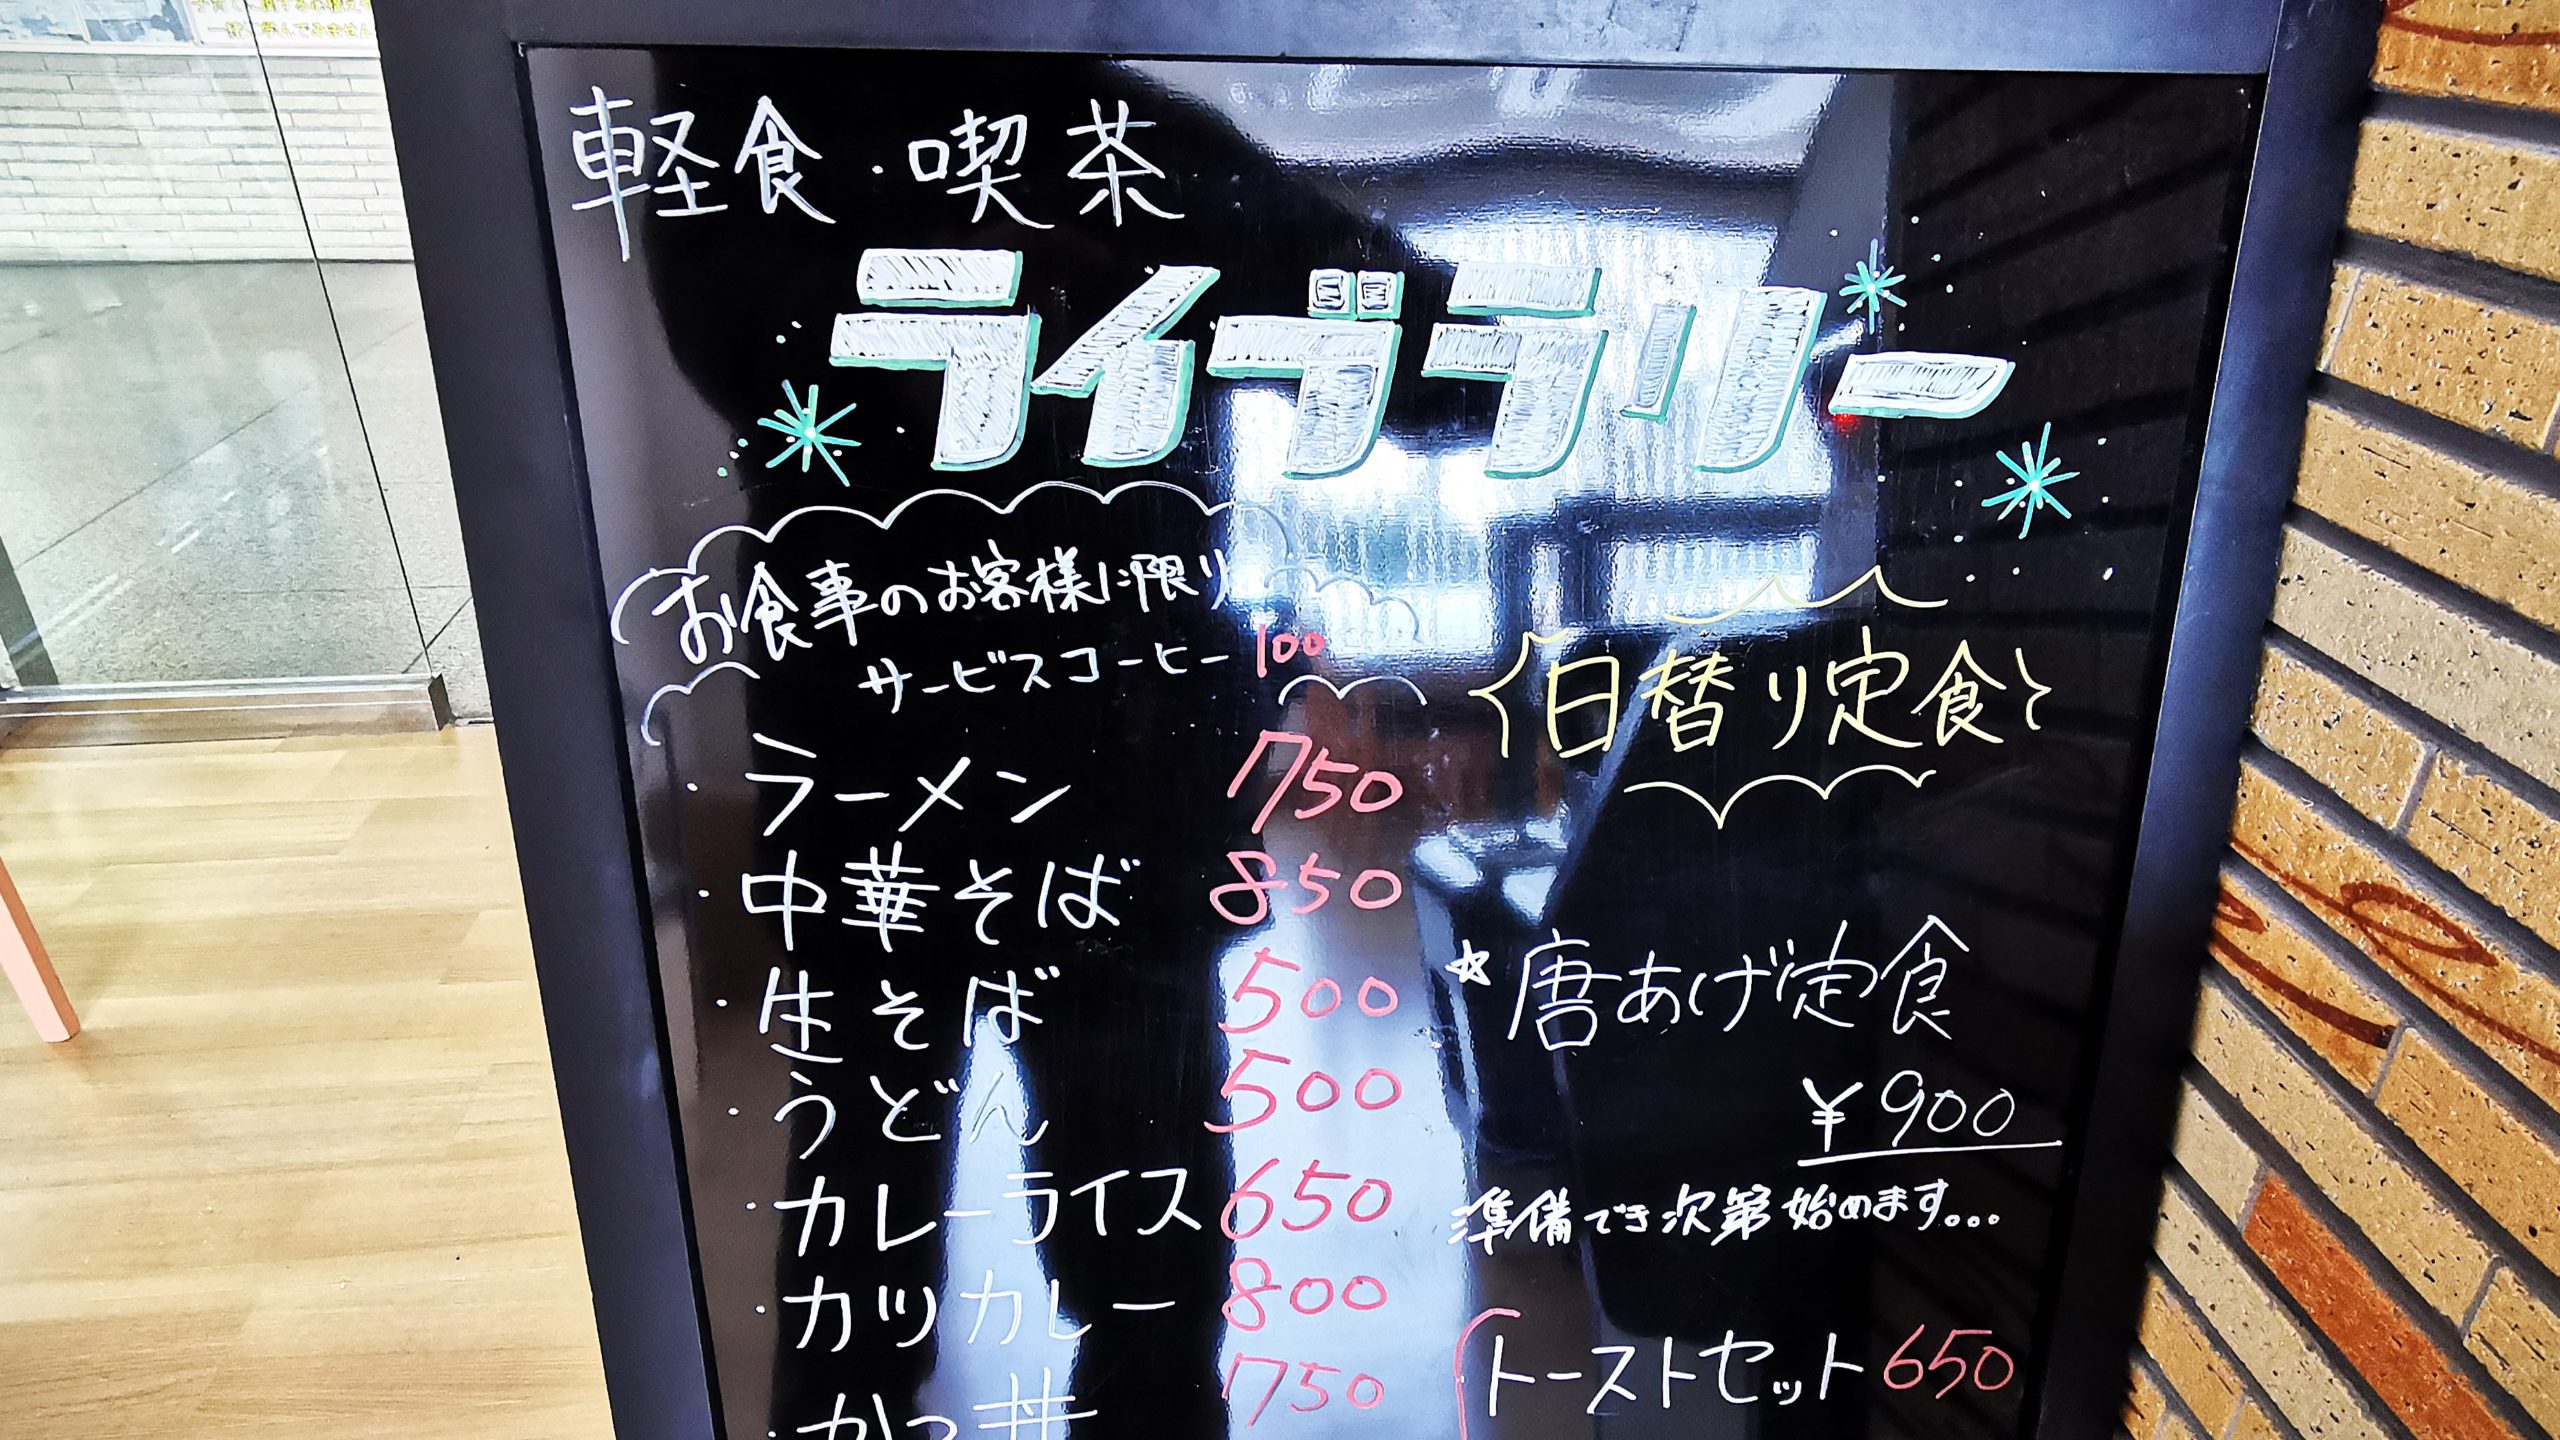 軽食・喫茶
ライブラリー
お食事のお客様に限り
サービスコーヒー 100
・ラーメン 750
・中華そば 850
・生そば 500
・うどん 500
・カレーライス 650
・カツカレー 800
・かつ丼 750
日替り定食
☆唐あげ定食
¥900
準備でき次第始めます。。。
トーストセット 650